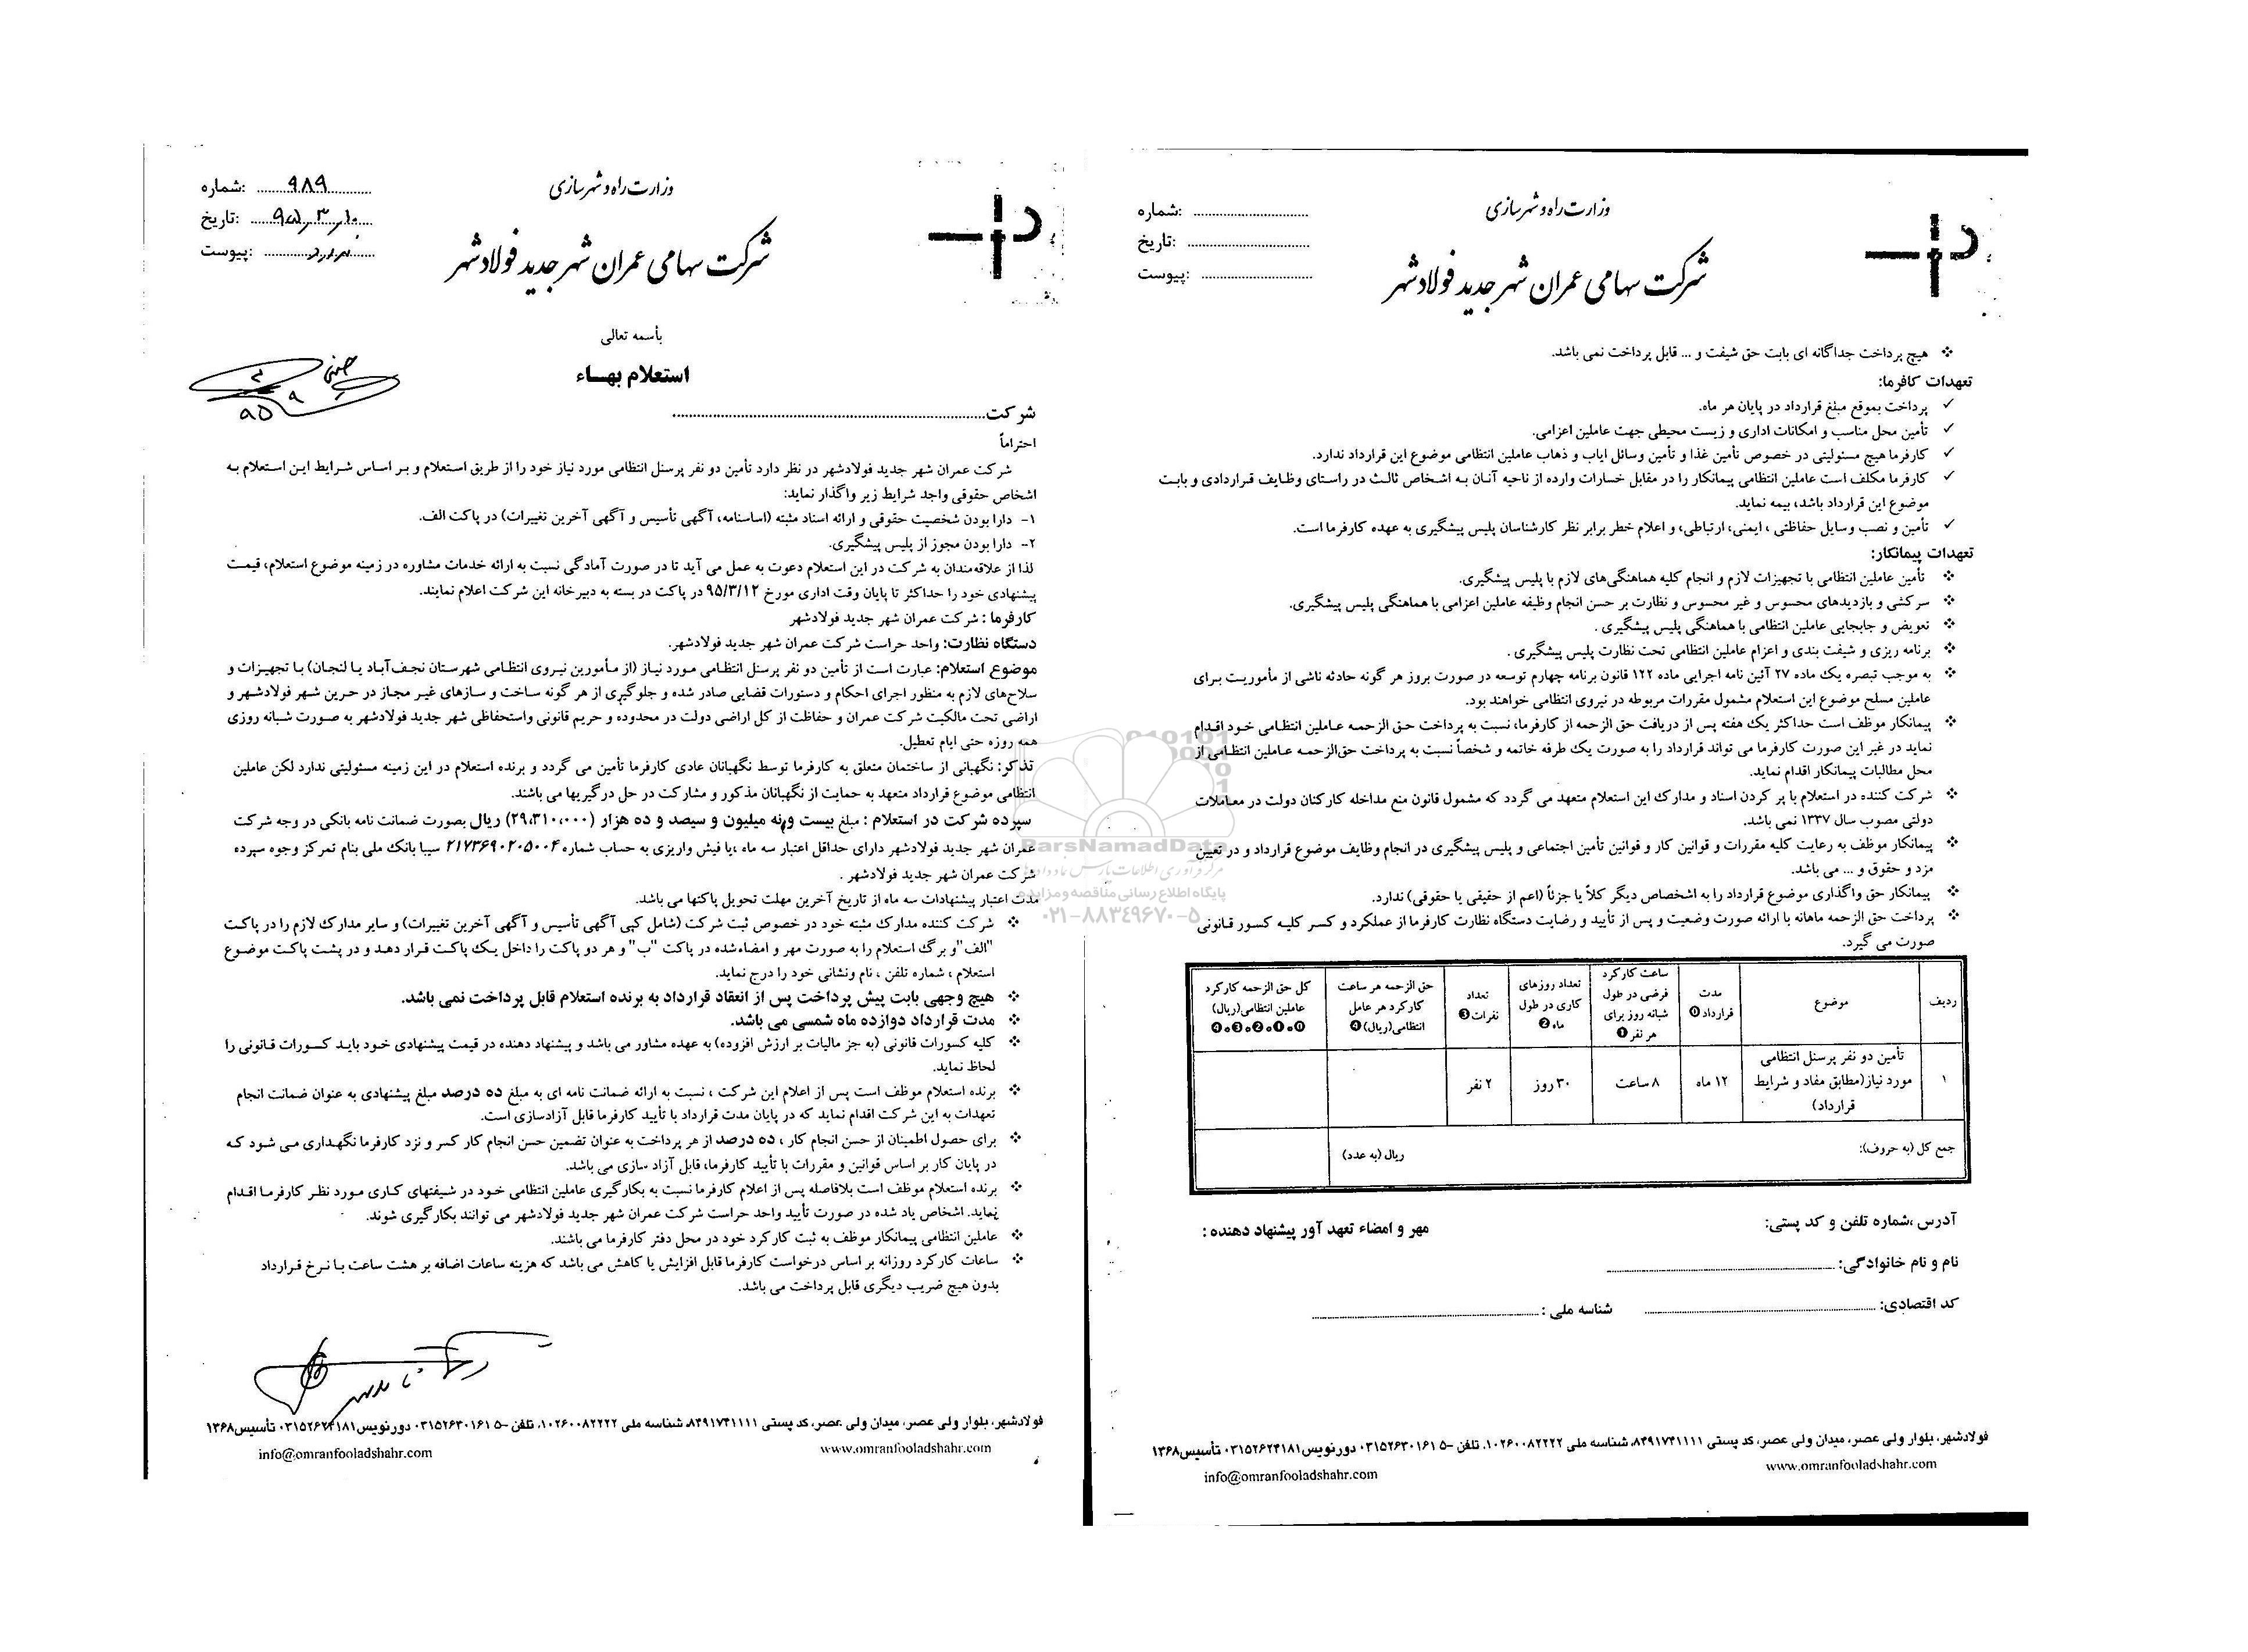 وزارت راه و شهرسازی
شرکت سهامی عمران شهر جدید فولادشهر
شماره: ۹۸۹
تاریخ: ۹۵/۳/۱۰
پیوست: ندارد
بأسمه تعالی
استعلام بهـــاء
شرکت
احتراماً
شرکت عمران شهر جدید فولادشهر در نظر دارد تأمین دو نفر پرسنل انتظامی مورد نیاز خود را از طریق استعلام و بر اساس شرایط این استعلام به
اشخاص حقوقی واجد شرایط زیر واگذار نماید:
۱- دارا بودن شخصیت حقوقی و ارائه اسناد مثبته (اساسنامه، آگهی تأسیس و آگهی آخرین تغییرات) در پاکت الف.
۲- دارا بودن مجوز از پلیس پیشگیری.
لذا از علاقه‌مندان به شرکت در این استعلام دعوت به عمل می آید تا در صورت آمادگی نسبت به ارائه خدمات مشاوره در زمینه موضوع استعلام، قیمت
پیشنهادی خود را حداکثر تا پایان وقت اداری مورخ ۹۵/۳/۱۲ در پاکت در بسته به دبیرخانه این شرکت اعلام نمایند.
کارفرما : شرکت عمران شهر جدید فولادشهر
دستگاه نظارت: واحد حراست شرکت عمران شهر جدید فولادشهر.
موضوع استعلام: عبارت است از تأمین دو نفر پرسنل انتظامی مورد نیاز (از مأمورین نیروی انتظامی شهرستان نجف‌آباد یا لنجان) با تجهیزات و
سلاح‌های لازم به منظور اجرای احکام و دستورات قضایی صادر شده و جلوگیری از هر گونه ساخت و سازهای غیر مجاز در حرین شهر فولادشهر و
اراضی تحت مالکیت شرکت عمران و حفاظت از کل اراضی دولت در محدوده و حریم قانونی واستحفاظی شهر جدید فولادشهر به صورت شبانه روزی
همه روزه حتی ایام تعطیل.
تذکر: نگهبانی از ساختمان متعلق به کارفرما توسط نگهبانان عادی کارفرما تأمین می گردد و برنده استعلام در این زمینه مسئولیتی ندارد لکن عاملین
انتظامی موضوع قرارداد متعهد به حمایت از نگهبانان مذکور و مشارکت در حل درگیریها می باشند.
سپرده شرکت در استعلام : مبلغ بیست و نه میلیون و سیصد و ده هزار (۲۹،۳۱۰،۰۰۰) ریال بصورت ضمانت نامه بانکی در وجه شرکت
عمران شهر جدید فولادشهر دارای حداقل اعتبار سه ماه ،یا فیش واریزی به حساب شماره ۲۱۷۳۶۹۰۲۰۵۰۰۴ سیبا بانک ملی بنام تمرکز وجوه سپرده
شرکت عمران شهر جدید فولادشهر .
مدت اعتبار پیشنهادات سه ماه از تاریخ آخرین مهلت تحویل پاکتها می باشد.
❖ شرکت کننده مدارک مثبته خود در خصوص ثبت شرکت (شامل کپی آگهی تأسیس و آگهی آخرین تغییرات) و سایر مدارک لازم را در پاکت
"الف"و برگ استعلام را به صورت مهر و امضاءشده در پاکت "ب" و هر دو پاکت را داخل یک پاکت قرار دهد و در پشت پاکت موضوع
استعلام ، شماره تلفن ، نام ونشانی خود را درج نماید.
❖ هیچ وجهی بابت پیش پرداخت پس از انعقاد قرارداد به برنده استعلام قابل پرداخت نمی باشد.
❖ مدت قرارداد دوازده ماه شمسی می باشد.
❖ کلیه کسورات قانونی (به جز مالیات بر ارزش افزوده) به عهده مشاور می باشد و پیشنهاد دهنده در قیمت پیشنهادی خود باید کسورات قانونی را
لحاظ نماید.
❖ برنده استعلام موظف است پس از اعلام این شرکت ، نسبت به ارائه ضمانت نامه ای به مبلغ ده درصد مبلغ پیشنهادی به عنوان ضمانت انجام
تعهدات به این شرکت اقدام نماید که در پایان مدت قرارداد با تأیید کارفرما قابل آزادسازی است.
❖ برای حصول اطمینان از حسن انجام کار ، ده درصد از هر پرداخت به عنوان تضمین حسن انجام کار کسر و نزد کارفرما نگهداری می شود که
در پایان کار بر اساس قوانین و مقررات با تأیید کارفرما، قابل آزاد سازی می باشد.
❖ برنده استعلام موظف است بلافاصله پس از اعلام کارفرما نسبت به بکارگیری عاملین انتظامی خود در شیفتهای کاری مورد نظر کارفرما اقدام
نماید. اشخاص یاد شده در صورت تأیید واحد حراست شرکت عمران شهر جدید فولادشهر می توانند بکارگیری شوند.
❖ عاملین انتظامی پیمانکار موظف به ثبت کارکرد خود در محل دفتر کارفرما می باشند.
❖ ساعات کارکرد روزانه بر اساس درخواست کارفرما قابل افزایش یا کاهش می باشد که هزینه ساعات اضافه بر هشت ساعت با نرخ قرارداد
بدون هیچ ضریب دیگری قابل پرداخت می باشد.
فولادشهر، بلوار ولی عصر، میدان ولی عصر، کد پستی ۸۴۹۱۷۴۱۱۱۱، شناسه ملی ۱۰۲۶۰۰۸۲۲۲۲، تلفن ۵-۰۳۱۵۲۶۳۰۱۶۱ دورنویس۰۳۱۵۲۶۲۴۱۸۱ تأسیس۱۳۶۸
www.omranfooladshahr.com
info@omranfooladshahr.com
وزارت راه و شهرسازی
شرکت سهامی عمران شهر جدید فولادشهر
شماره:
تاریخ:
پیوست:
❖ هیچ پرداخت جداگانه ای بابت حق شیفت و ... قابل پرداخت نمی باشد.
تعهدات کافرما:
✓ پرداخت بموقع مبلغ قرارداد در پایان هر ماه.
✓ تأمین محل مناسب و امکانات اداری و زیست محیطی جهت عاملین اعزامی.
✓ کارفرما هیچ مسئولیتی در خصوص تأمین غذا و تأمین وسائل ایاب و ذهاب عاملین انتظامی موضوع این قرارداد ندارد.
✓ کارفرما مکلف است عاملین انتظامی پیمانکار را در مقابل خسارات وارده از ناحیه آنان به اشخاص ثالث در راستای وظایف قراردادی و بابت
موضوع این قرارداد باشد، بیمه نماید.
✓ تأمین و نصب وسایل حفاظتی ، ایمنی، ارتباطی، و اعلام خطر برابر نظر کارشناسان پلیس پیشگیری به عهده کارفرما است.
تعهدات پیمانکار:
❖ تأمین عاملین انتظامی با تجهیزات لازم و انجام کلیه هماهنگی‌های لازم با پلیس پیشگیری.
❖ سرکشی و بازدیدهای محسوس و غیر محسوس و نظارت بر حسن انجام وظیفه عاملین اعزامی با هماهنگی پلیس پیشگیری.
❖ تعویض و جابجایی عاملین انتظامی با هماهنگی پلیس پیشگیری .
❖ برنامه ریزی و شیفت بندی و اعزام عاملین انتظامی تحت نظارت پلیس پیشگیری .
❖ به موجب تبصره یک ماده ۲۷ آئین نامه اجرایی ماده ۱۲۲ قانون برنامه چهارم توسعه در صورت بروز هر گونه حادثه ناشی از مأموریت برای
عاملین مسلح موضوع این استعلام مشمول مقررات مربوطه در نیروی انتظامی خواهند بود.
❖ پیمانکار موظف است حداکثر یک هفته پس از دریافت حق الزحمه از کارفرما، نسبت به پرداخت حق الزحمه عاملین انتظامی خود اقدام
نماید در غیر این صورت کارفرما می تواند قرارداد را به صورت یک طرفه خاتمه و شخصاً نسبت به پرداخت حق‌الزحمه عاملین انتظامی از
محل مطالبات پیمانکار اقدام نماید.
❖ شرکت کننده در استعلام با پر کردن اسناد و مدارک این استعلام متعهد می گردد که مشمول قانون منع مداخله کارکنان دولت در معاملات
دولتی مصوب سال ۱۳۳۷ نمی باشد.
❖ پیمانکار موظف به رعایت کلیه مقررات و قوانین کار و قوانین تأمین اجتماعی و پلیس پیشگیری در انجام وظایف موضوع قرارداد و در تعیین
مزد و حقوق و ... می باشد.
❖ پیمانکار حق واگذاری موضوع قرارداد را به اشخاص دیگر کلاً یا جزئاً (اعم از حقیقی یا حقوقی) ندارد.
❖ پرداخت حق الزحمه ماهانه با ارائه صورت وضعیت و پس از تأیید و رضایت دستگاه نظارت کارفرما از عملکرد و کسر کلیه کسور قانونی
صورت می گیرد.
ردیف
موضوع
مدت قرارداد⓿
ساعت کارکرد فرضی در طول شبانه روز برای هر نفر❶
تعداد روزهای کاری در طول ماه❷
تعداد نفرات❸
حق الزحمه هر ساعت کارکرد هر عامل انتظامی(ریال)❹
کل حق الزحمه کارکرد عاملین انتظامی(ریال)
۱
تأمین دو نفر پرسنل انتظامی مورد نیاز(مطابق مفاد و شرایط قرارداد)
۱۲ ماه
۸ ساعت
۳۰ روز
۲ نفر
جمع کل (به حروف):
ریال (به عدد)
آدرس ،شماره تلفن و کد پستی:
مهر و امضاء تعهد آور پیشنهاد دهنده :
نام و نام خانوادگی:
کد اقتصادی:
شناسه ملی :
فولادشهر، بلوار ولی عصر، میدان ولی عصر، کد پستی ۸۴۹۱۷۴۱۱۱۱، شناسه ملی ۱۰۲۶۰۰۸۲۲۲۲، تلفن ۵-۰۳۱۵۲۶۳۰۱۶۱ دورنویس۰۳۱۵۲۶۲۴۱۸۱ تأسیس۱۳۶۸
www.omranfooladshahr.com
info@omranfooladshahr.com
ParsNamadData
پایگاه اطلاع رسانی مناقصه و مزایده
۰۲۱-۸۸۳۴۹۶۷۰-۵